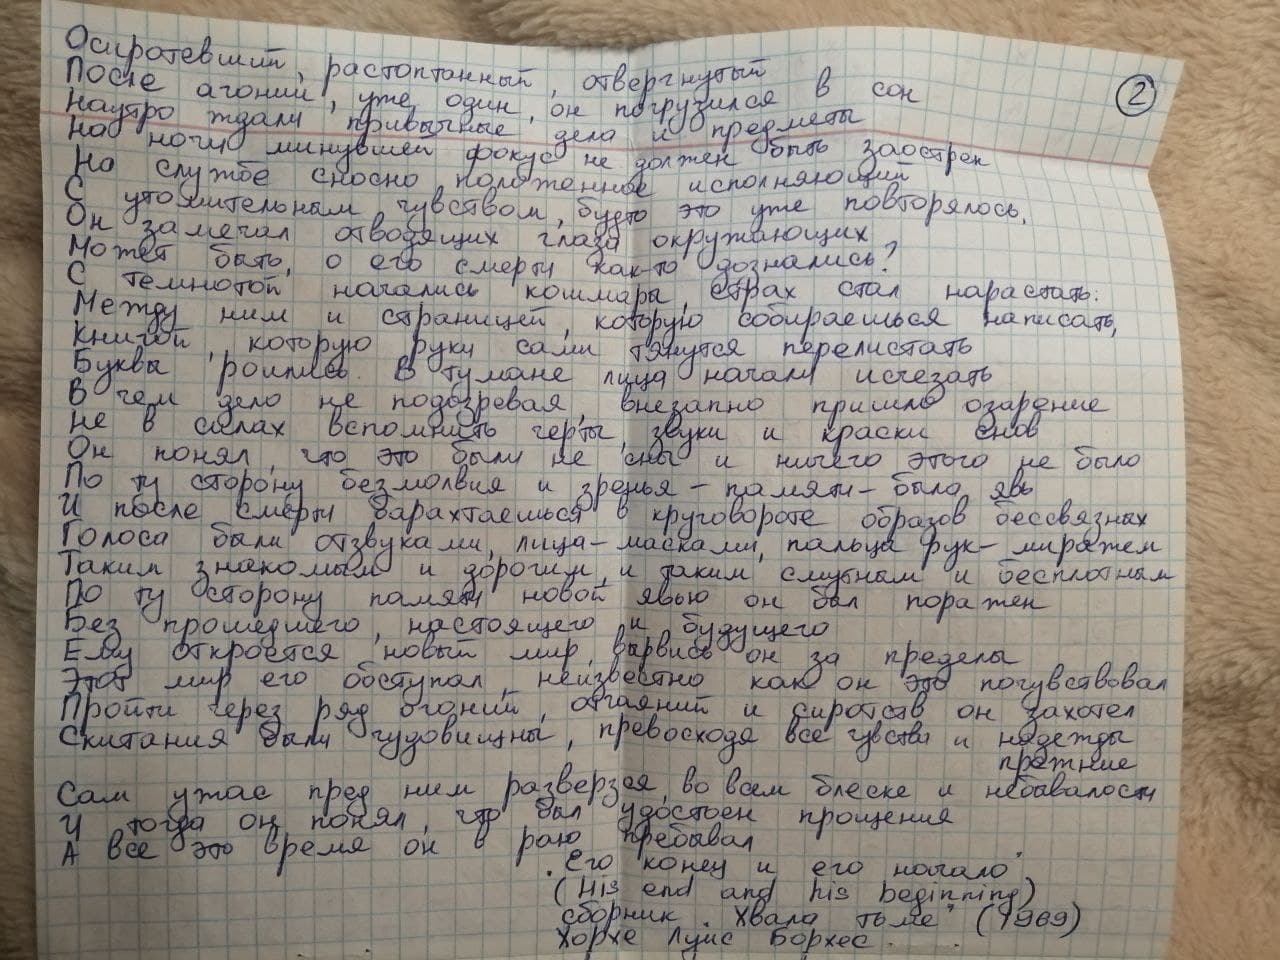 2
Осиротевший, растоптанный, отвергнутый
После агонии, уже один, он погрузился в сон
Наутро ждали привычные дела и предметы
На ночи минувшей фокус не должен быть заострен
На службе сносно положенное исполняющий
С утомительным чувством, будто это уже повторялось,
Он замечал отводящих глаза окружающих
Может быть, о его смерти как-то дознались?
С темнотой начались кошмары, страх стал нарастать:
Между ним и страницей, которую собираешься написать,
Книгой, которую руки сами тянутся перелистать
Буквы роились. В тумане лица начали исчезать
В чем дело не подозревая, внезапно пришло озарение
Не в силах вспомнить черты, звуки и краски снов
Он понял, что это были не сны и ничего этого не было
По ту сторону безмолвия и зренья – памяти – была явь
И после смерти барахтаешься в круговороте образов бессвязных
Голоса были отзвуками, лица – масками, пальцы рук – миражем
Таким знакомым и дорогим, и таким смутным и бесплотным
По ту сторону памяти новой явью он был поражен
Без прошедшего, настоящего и будущего
Ему откроется новый мир, вырвись он за пределы
Этот мир его обступал, неизвестно как он это почувствовал
Пройти через ряд агоний, отчаяний и сиротств он захотел
Скитания были чудовищны, превосходя все чувства и надежды
прежние
Сам ужас пред ним разверзся, во всем блеске и небывалости
И тогда он понял, что был удостоен прощения
А все это время он в раю пребывал
"Его конец и его начало"
(His end and his beginning)
сборник "Хвала тьме" (1969)
Хорхе Луис Борхес